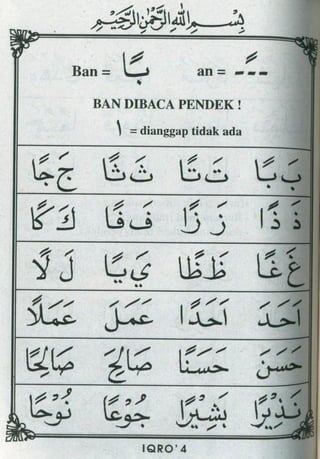 بِسْمِ اللهِ الرَّحْمٰنِ الرَّحِيْمِ
Ban = بًا an = ـًـ
BAN DIBACA PENDEK !
ا = dianggap tidak ada
بَ بًا تَ تًا ثَ ثًا جَ جًا
ذَ ذًا زَ زًا فَ فًا كَ كًا
غَ غًا ظَ ظًا يَ يًا لَ لًا
اَحَدَ اَحَدًا عَمَلَ عَمَلًا
حَسَنَ حَسَنًا صَالِحَ صَالِحًا
نَذِيْرًا بَشِيْرًا جُوْعًا نُوْحًا
IQRO' 4